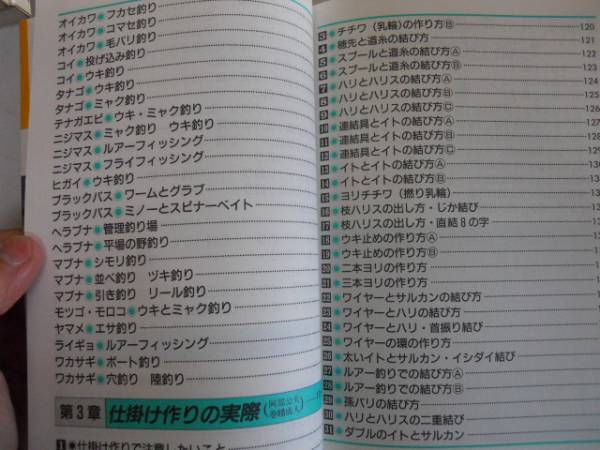 オイカワ●フカセ釣り
オイカワ●コマセ釣り
オイカワ●毛バリ釣り
コイ●投げ込み釣り
コイ●ウキ釣り
タナゴ●ウキ釣り
タナゴ●ミャク釣り
テナガエビ●ウキ・ミャク釣り
ニジマス●ミャク釣り ウキ釣り
ニジマス●ルアーフィッシング
ニジマス●フライフィッシング
ヒガイ●ウキ釣り
ブラックバス●ワームとグラブ
ブラックバス●ミノーとスピナーベイト
ヘラブナ●管理釣り場
ヘラブナ●平場の野釣り
マブナ●シモリ釣り
マブナ●並べ釣り ヅキ釣り
マブナ●引き釣り リール釣り
モツゴ・モロコ●ウキとミャク釣り
ヤマメ●エサ釣り
ライギョ●ルアーフィッシング
ワカサギ●ボート釣り
ワカサギ●穴釣り 陸釣り
第3章 仕掛け作りの実際
1●仕掛け作りで注意したいこと
3●チチワ(乳輪)の作り方Ⓑ 120
4●穂先と道糸の結び方 121
5●スプールと道糸の結び方Ⓐ 122
6●スプールと道糸の結び方Ⓑ 123
7●ハリとハリスの結び方Ⓐ 124
8●ハリとハリスの結び方Ⓑ 125
9●ハリとハリスの結び方Ⓒ 126
10●連結具とイトの結び方Ⓐ 127
11●連結具とイトの結び方Ⓑ 128
12●連結具とイトの結び方Ⓒ 129
13●イトとイトの結び方Ⓐ
14●イトとイトの結び方Ⓑ
15●ヨリチチワ(撚り乳輪)
16●枝ハリスの出し方・じか結び
17●枝ハリスの出し方・直結8の字
18●ウキ止めの作り方Ⓐ
19●ウキ止めの作り方Ⓑ
20●二本ヨリの作り方
21●三本ヨリの作り方
22●ワイヤーとサルカンの結び方
23●ワイヤーとハリの結び方
24●ワイヤーとハリ・首振り結び
25●ワイヤーの環の作り方
26●太いイトとサルカン・イシダイ結び
27●ルアー釣りでの結び方Ⓐ
28●ルアー釣りでの結び方Ⓑ
29●孫バリの結び方
30●ハリとハリスの二重結び
31●ダブルのイトとサルカン